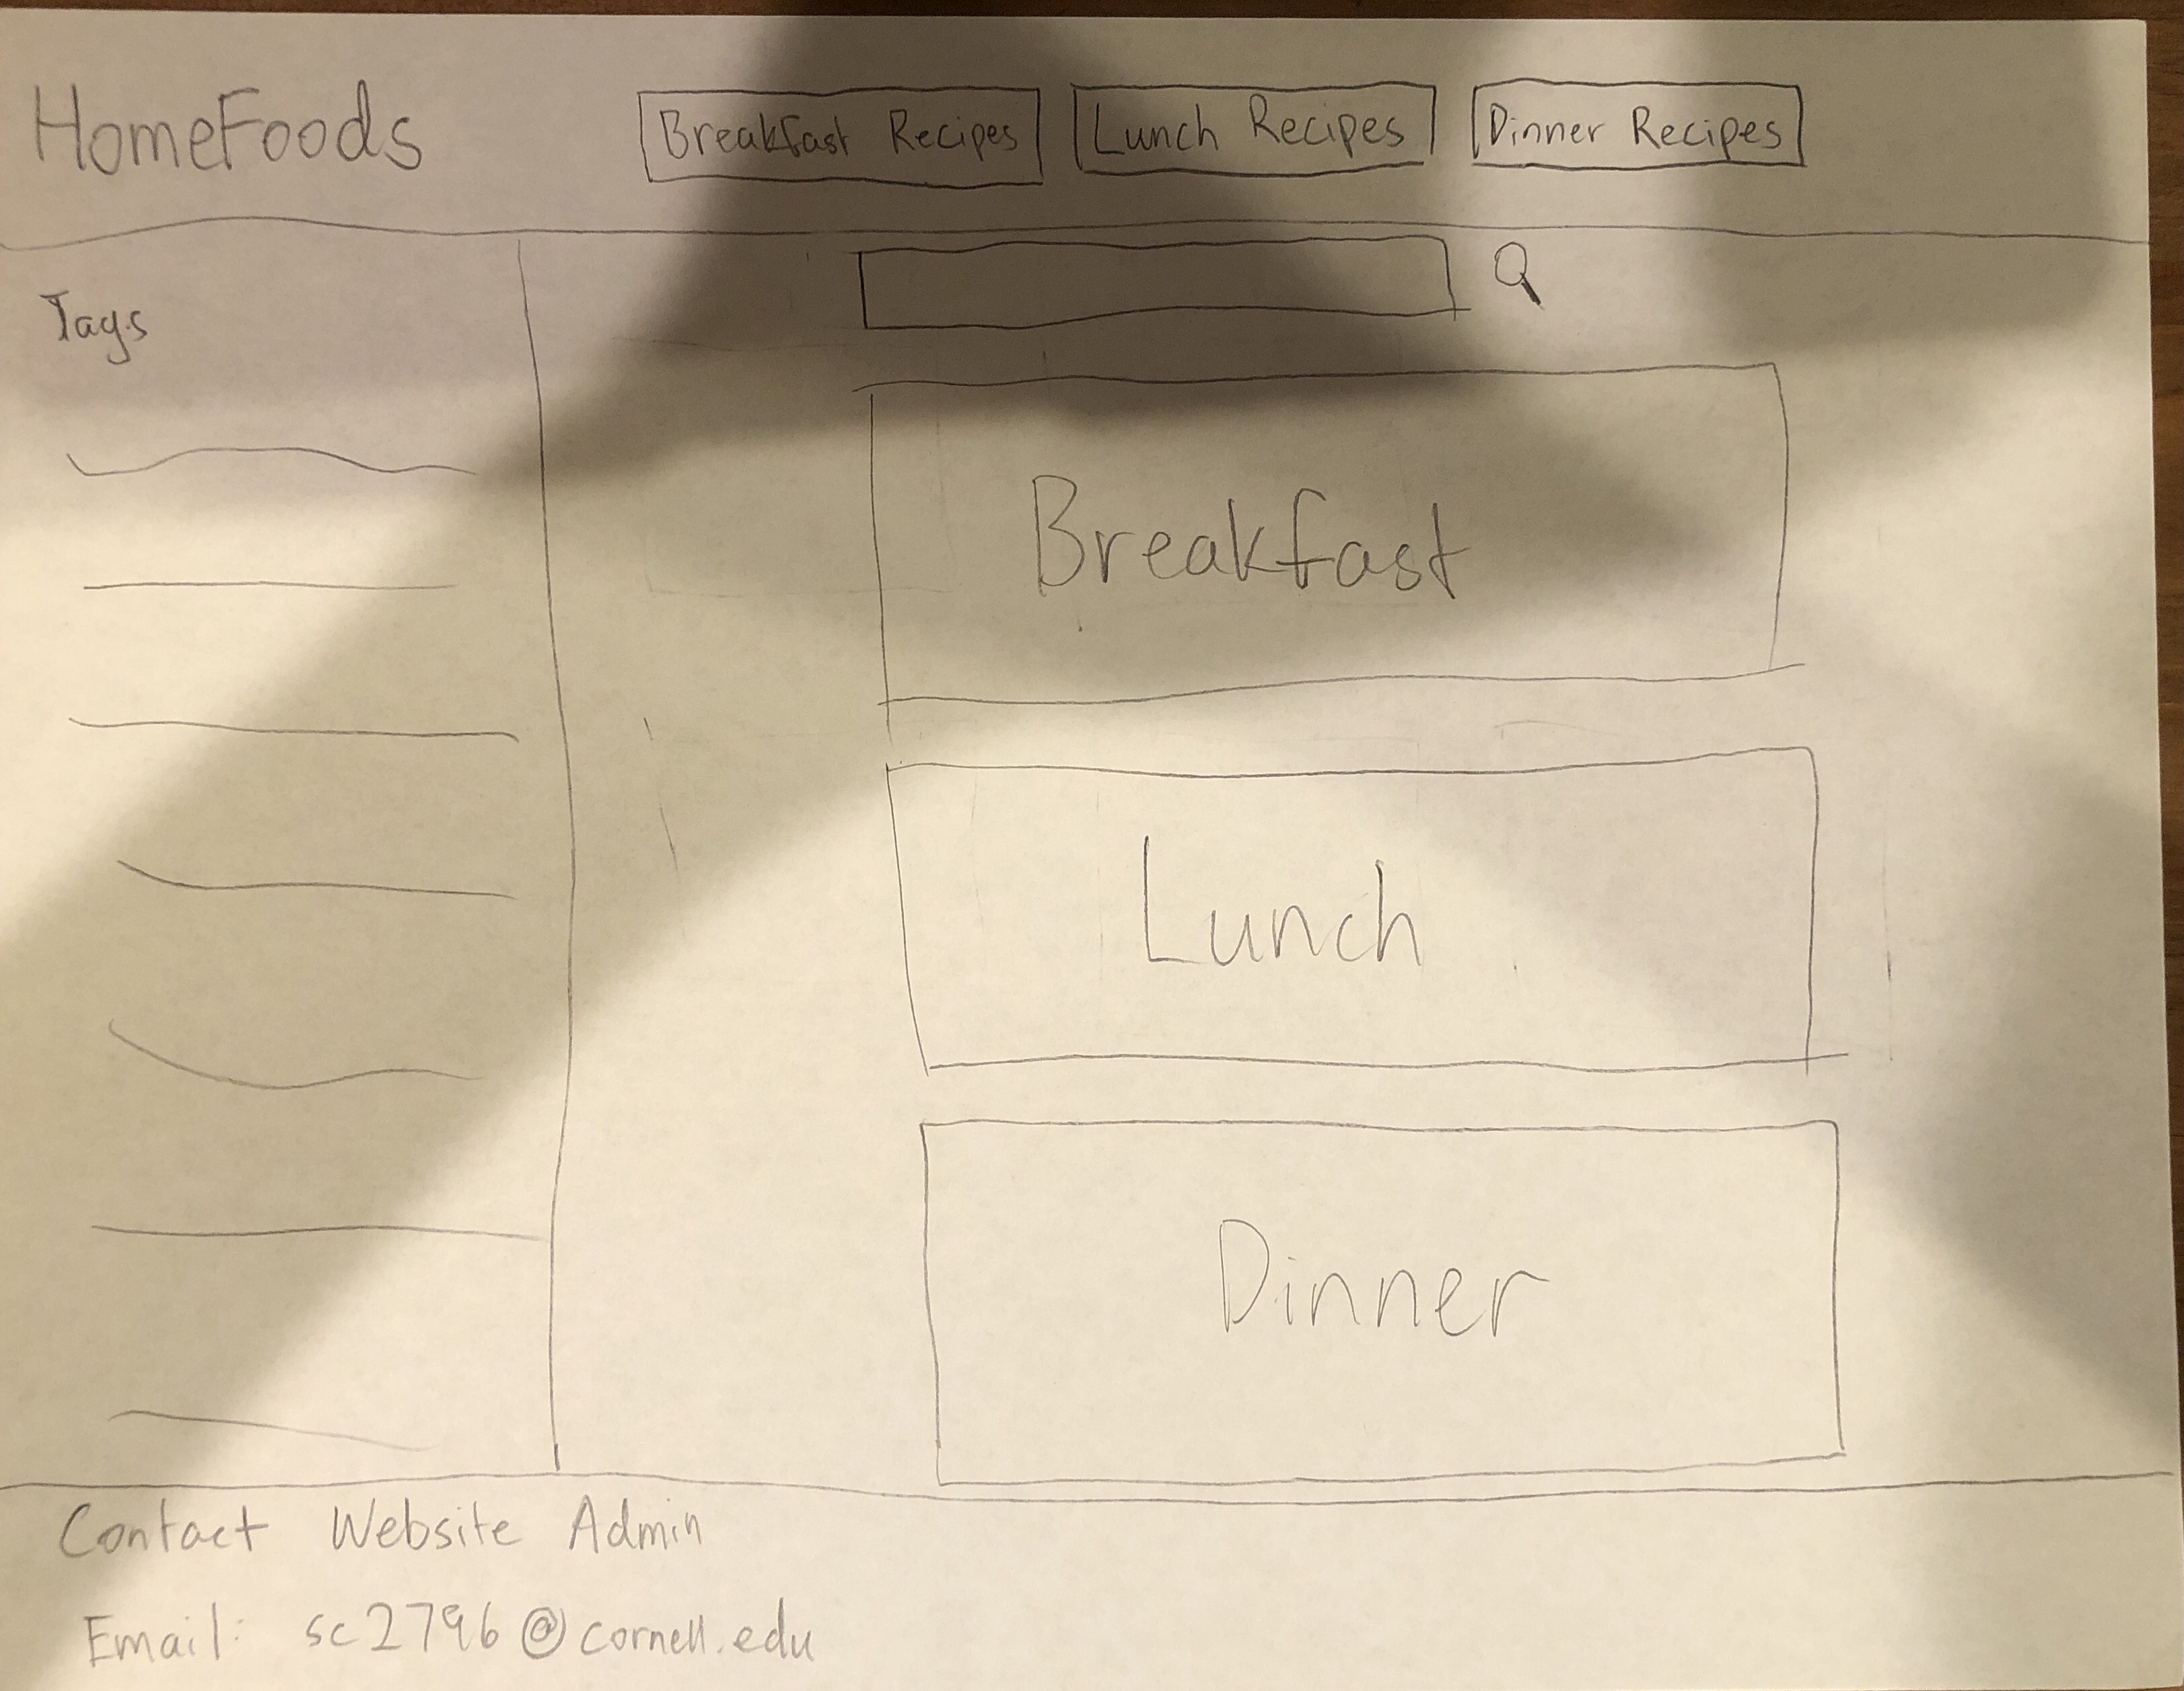 HomeFoods
Breakfast Recipes
Lunch Recipes
Dinner Recipes
Tags
Breakfast
Lunch
Dinner
Contact Website Admin
Email: sc2796@cornell.edu